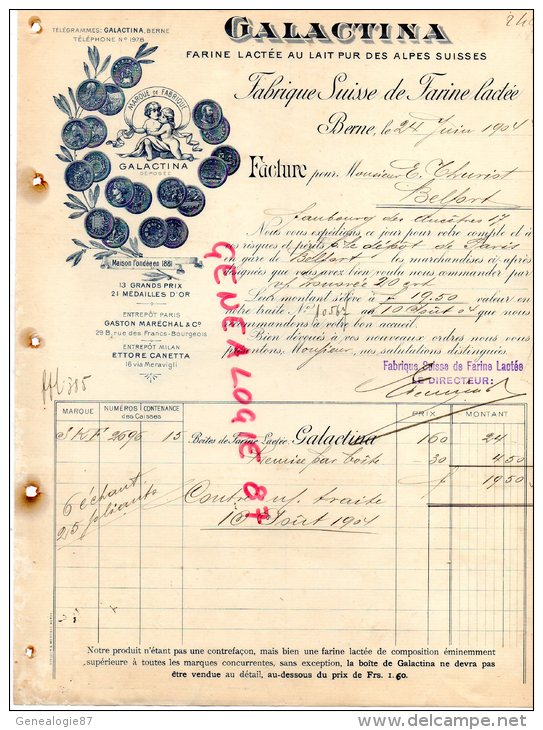 TÉLÉGRAMMES: GALACTINA, BERNE
TÉLÉPHONE Nº 1978
GALACTINA
FARINE LACTÉE AU LAIT PUR DES ALPES SUISSES
Fabrique Suisse de Farine lactée
Berne, le 24 Juin 1904
MARQUE DE FABRIQUE
GALACTINA
DÉPOSÉE
Maison fondée en 1881
13 GRANDS PRIX
21 MÉDAILLES D'OR
ENTREPÔT PARIS
GASTON MARÉCHAL & Cº
29 B, rue des Francs-Bourgeois
ENTREPÔT MILAN
ETTORE CANETTA
16 via Meravigli
Facture pour Monsieur E. Thurist
Belfort
faubourg des Ancêtres 17
Nous vous expédions ce jour pour votre compte et à
vos risques et périls p. le dépôt de Paris
en gare de Belfort les marchandises ci-après
désignées que vous avez bien voulu nous commander par
20 crt
Leur montant s'élève à F 19.50 valeur en
notre traite Nº 10562 au 10 Août 04 que nous
recommandons à votre bon accueil.
Bien dévoués à vos nouveaux ordres nous vous
présentons, Monsieur, nos salutations distinguées.
Fabrique Suisse de Farine Lactée
LE DIRECTEUR:
MARQUE NUMÉROS des Caisses CONTENANCE PRIX MONTANT
SKF 2696 15 Boîtes de Farine Lactée Galactina 160 24 -
Remise par boîte 30 4.50
f 19.50
6 échant
25 pliants
Contre n/ traite
10 Août 1904
Notre produit n'étant pas une contrefaçon, mais bien une farine lactée de composition éminemment
supérieure à toutes les marques concurrentes, sans exception, la boîte de Galactina ne devra pas
être vendue au détail, au-dessous du prix de Frs. 1.60.
GENEALOGIE 87
Genealogie87
delcampe.net